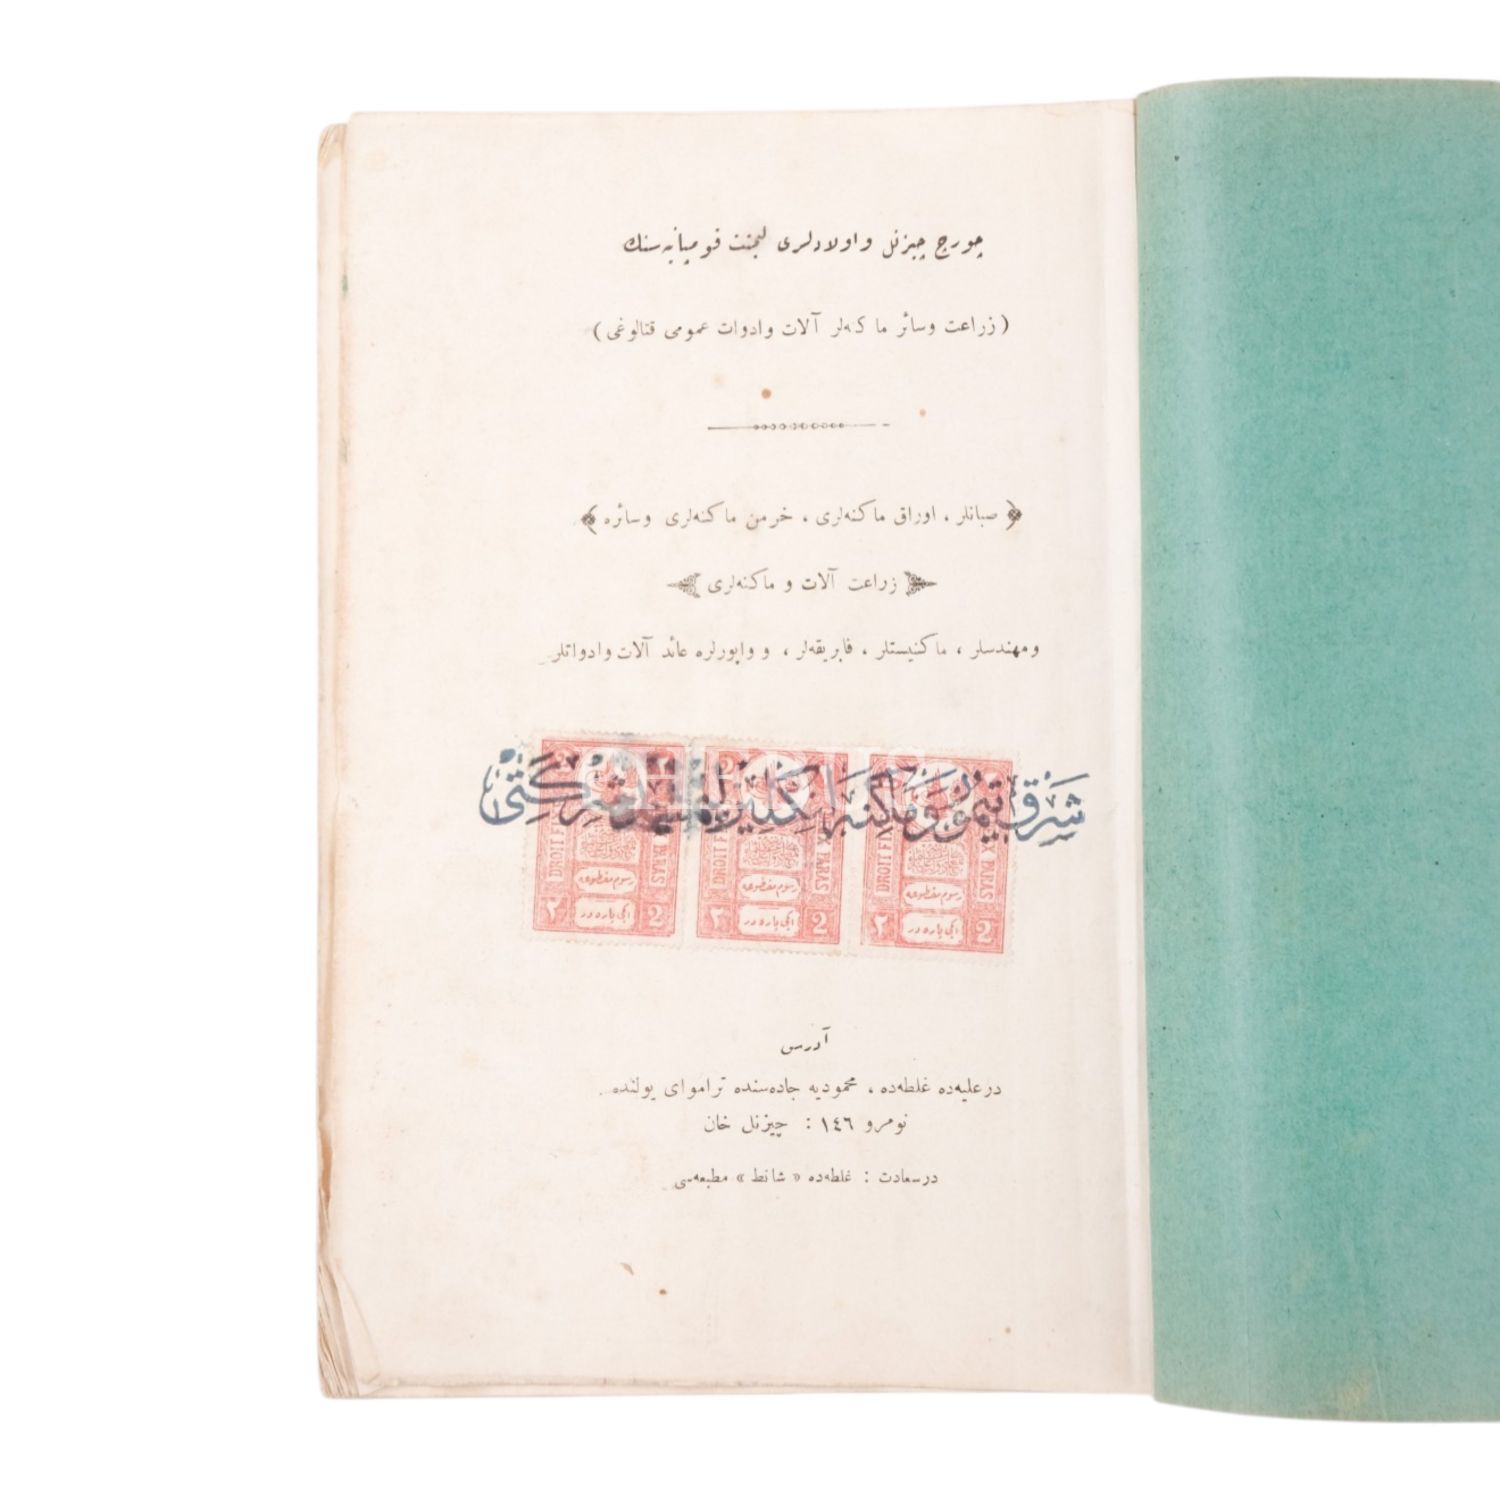 جورج چیزنل و اولادلری لیمتد قومپانیه‌سنك
(زراعت وسائر ماكنه‌لر آلات وادوات عمومی قتالوغی)
صبانلر ، اوراق ماكنه‌لری ، خرمن ماكنه‌لری وسائره
زراعت آلات و ماكنه‌لری
ومهندسلر ، ماكنیستلر ، فابریقه‌لر ، و واپورلره عائد آلات وادواتلر
شرق تیمور و ماكنه انكلیز شركتی
DROIT FIX
PARAS
رسوم مقطوعه
٢ ایكی پاره در 2
DROIT FIX
PARAS
رسوم مقطوعه
٢ ایكی پاره در 2
DROIT FIX
PARAS
رسوم مقطوعه
٢ ایكی پاره در 2
آدرس
درعلیه‌ده غلطه‌ده ، محمودیه جاده‌سنده تراموای یولنده
نومرو ١٤٦ : چیزنل خان
درسعادت : غلطه‌ده « شانط » مطبعه‌سی